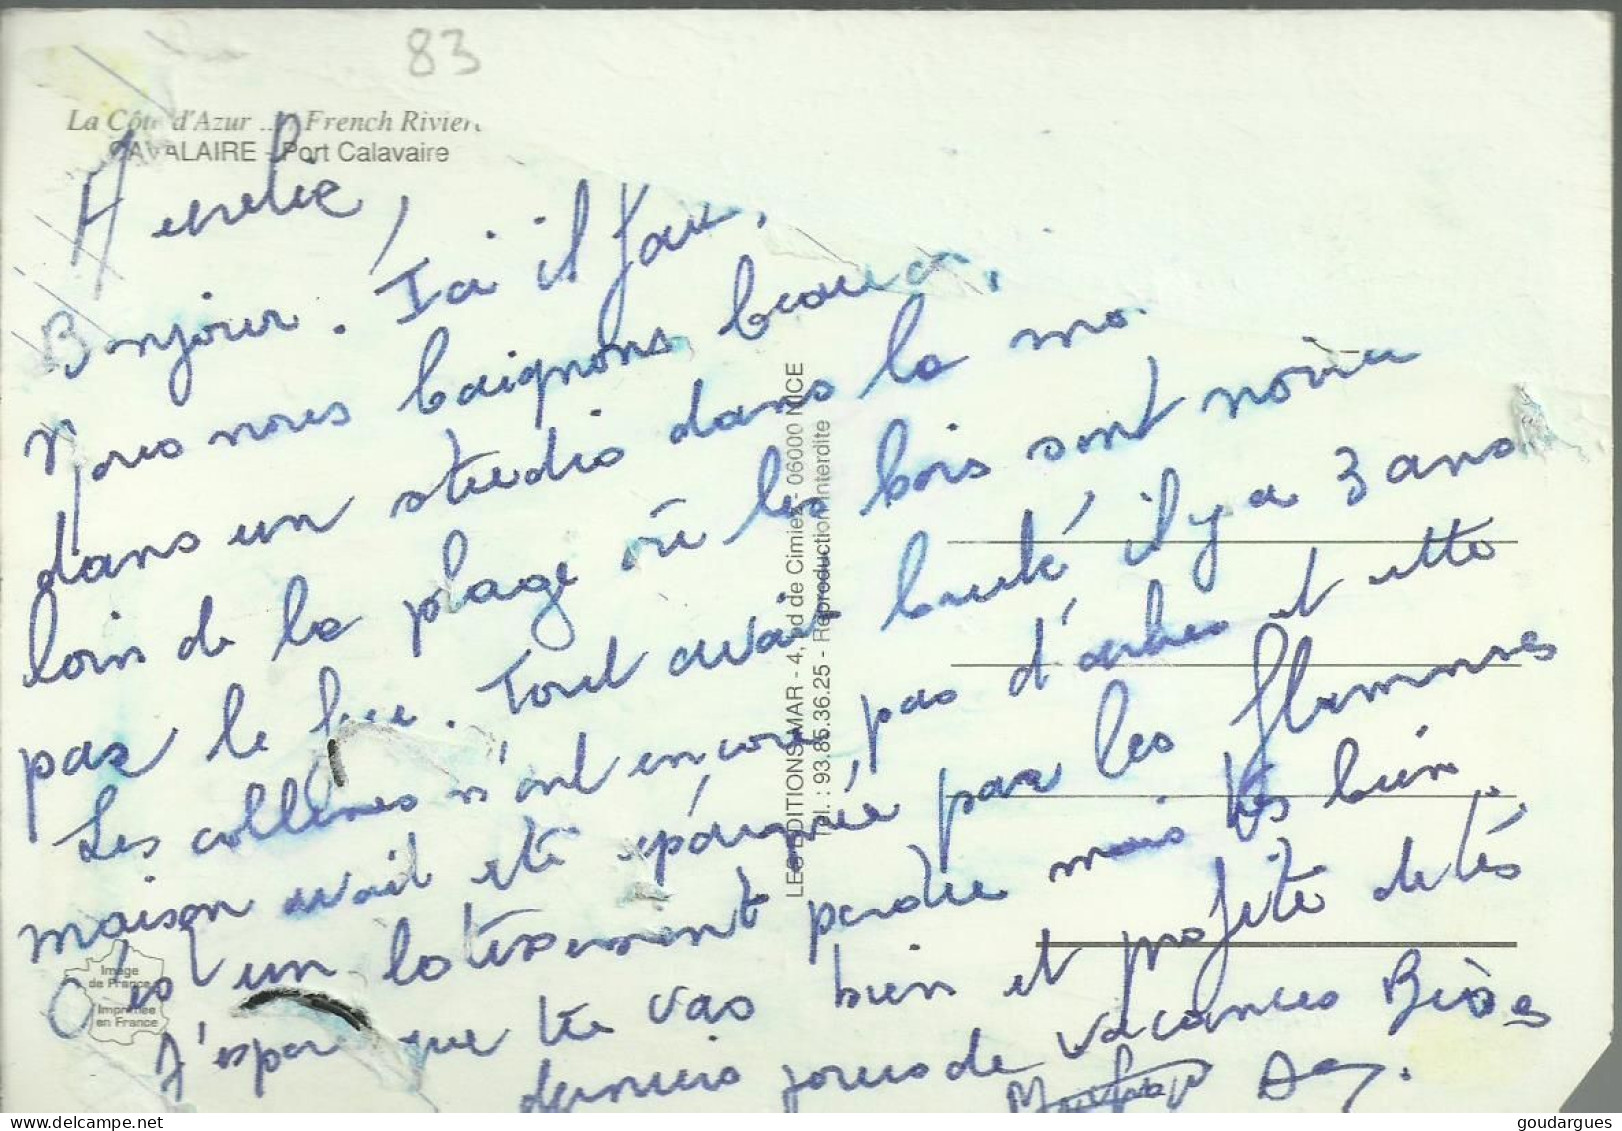 83
La Côte d'Azur ... French Rivier
CAVALAIRE - Port Calavaire
Aurélie,
Bonjour. Ici il fau
Nous nous baignons beauco
dans un studio dans la ma
loin de la plage où les bois sont noircis
par le feu. Tout avait brulé il y a 3 ans
Les collines n'ont encore pas d'arbres et cette
maison avait été épargnée par les flammes
C'est un lotissement perdu mais très bien.
J'espère que tu vas bien et profite de tes
derniers jours de vacances Bises
LES EDITIONS MAR - 4, Bd de Cimiez - 06000 NICE
Tél. : 93.85.36.25 - Reproduction interdite
Image
de France
Imprimée
en France
delcampe.net
goudargues